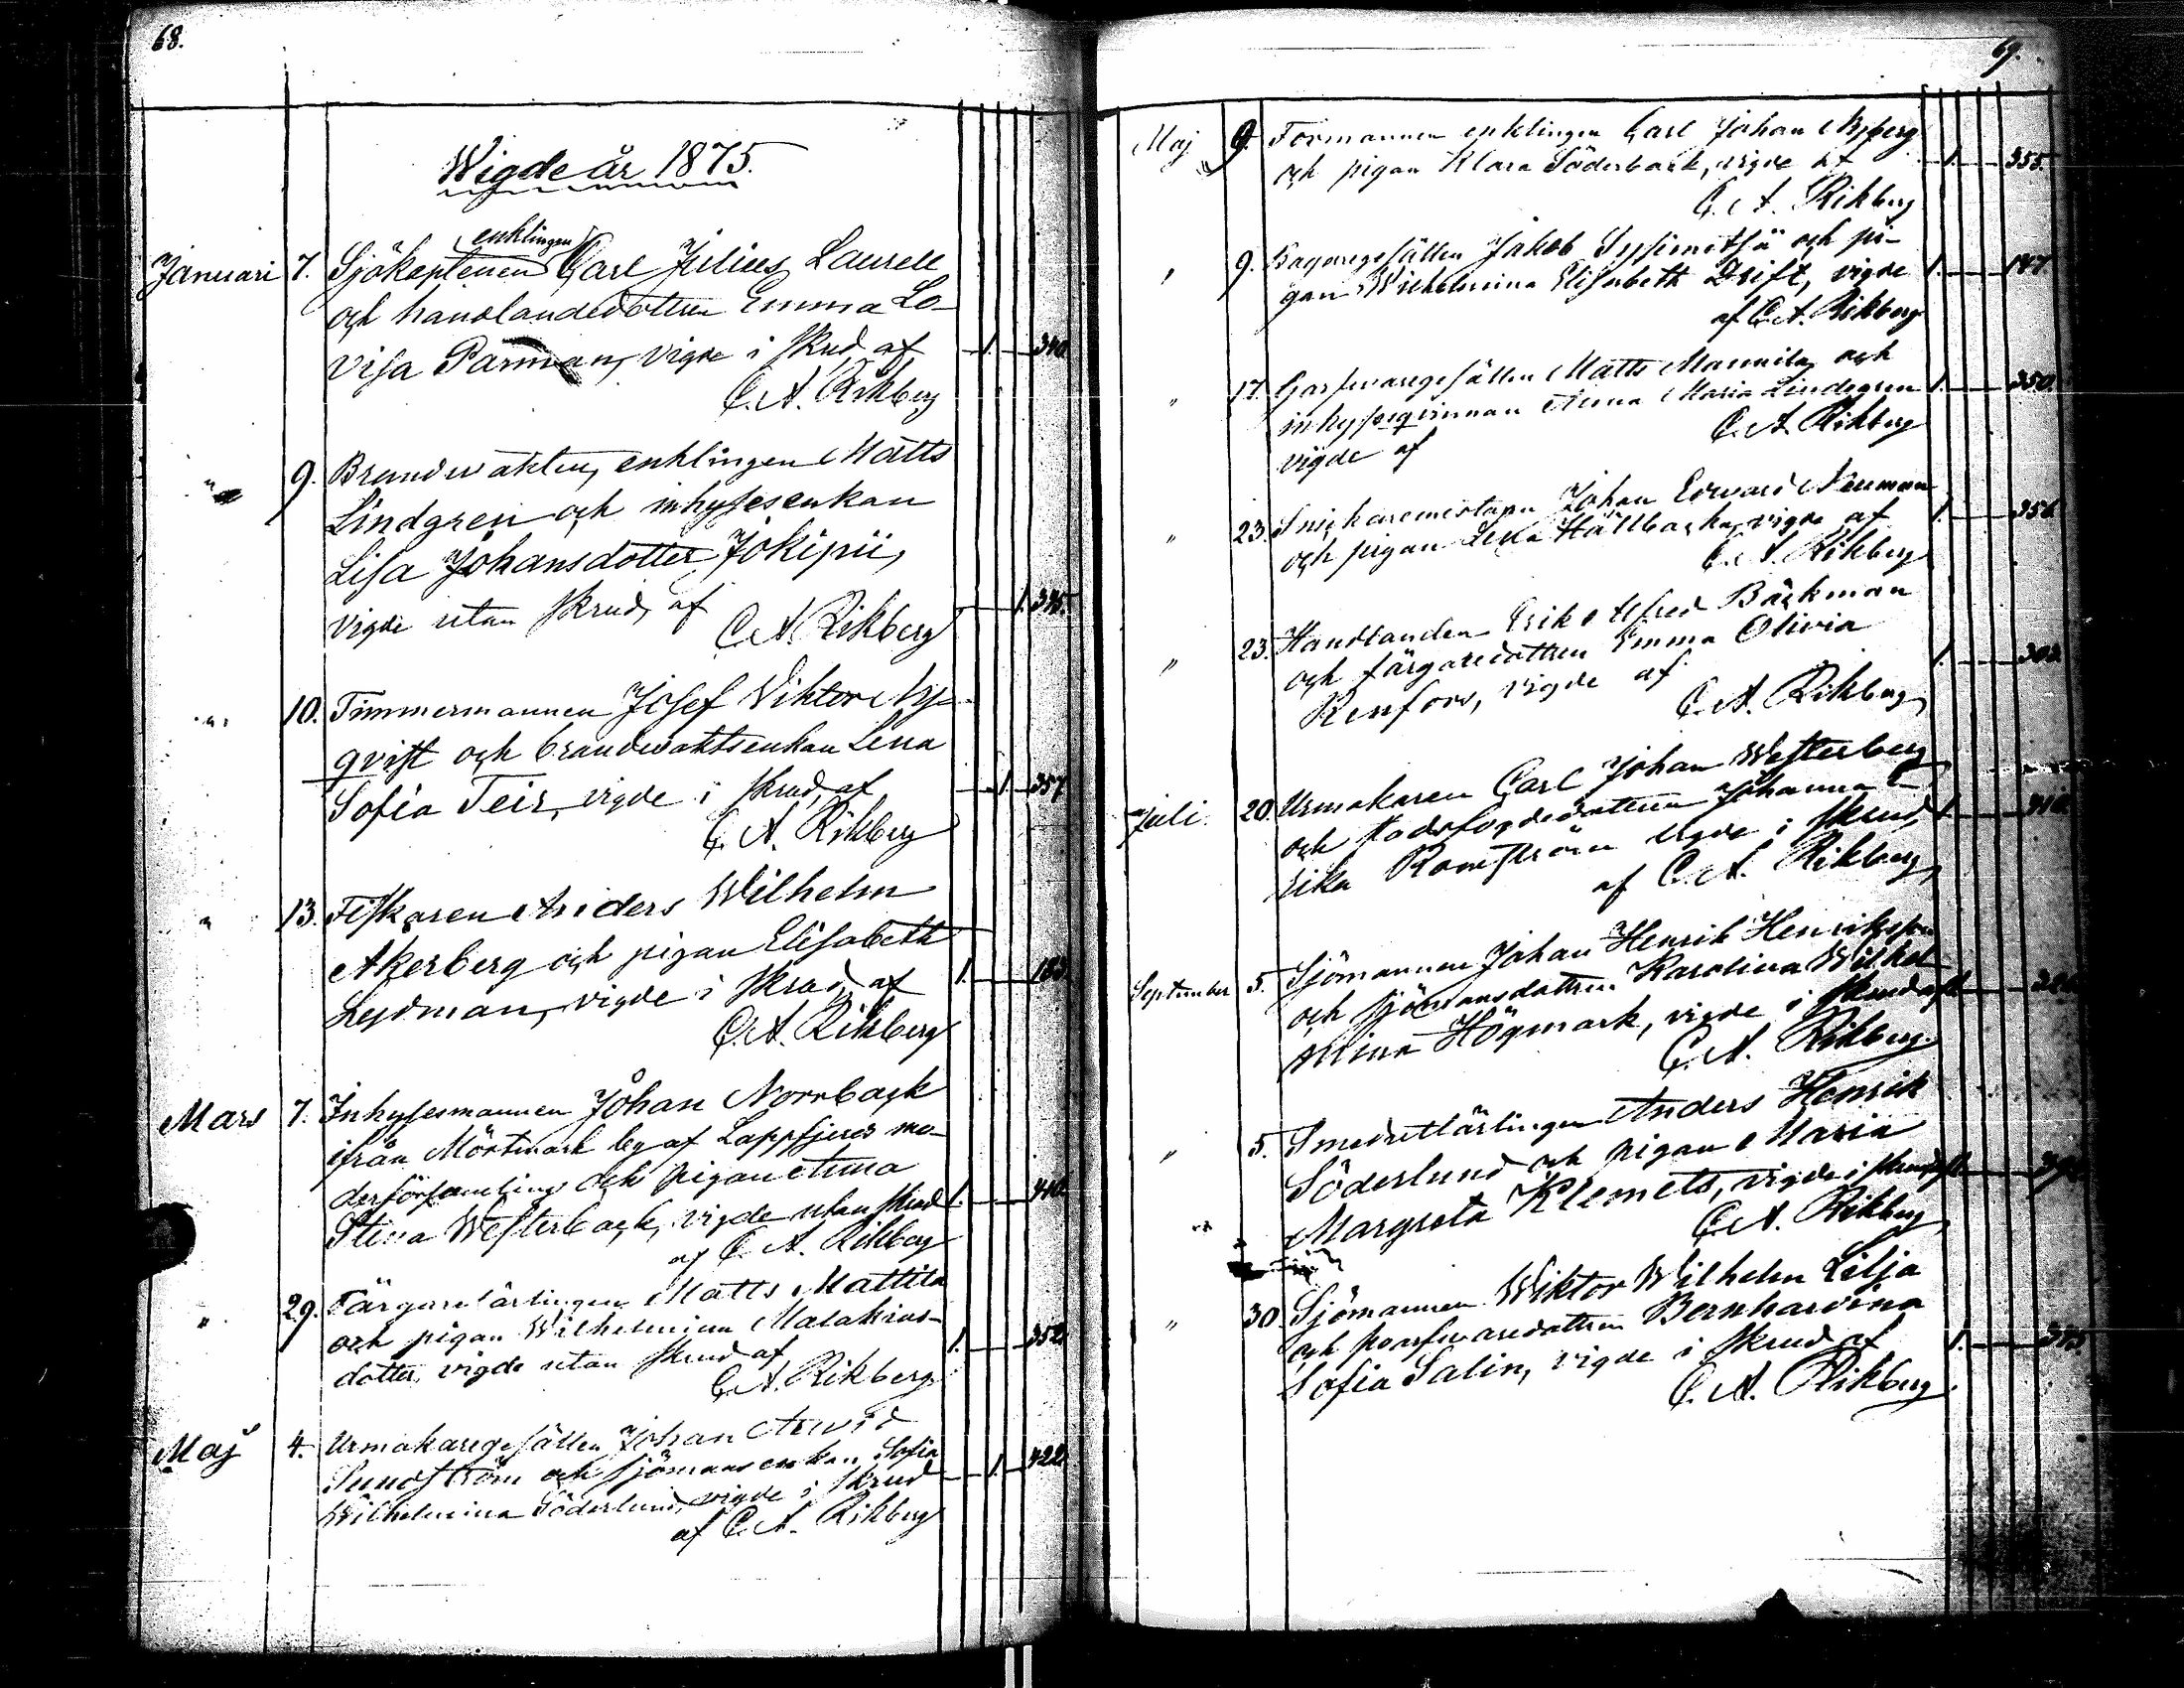 68.
Wigde år 1875.
enklingen
Januari 7. Sjökaptenen Carl Julius Laurell
och handlandedottren Emma Lo-
visa Parman, vigde i skrud af 1. 340.
C. A. Rikberg
" 9. Brandvakten, enklingen Matts
Lindgren och inhysesenkan
Lisa Johansdotter Jokipii,
vigde utan skrud, af 1.
C. A. Rikberg
" 10. Timmermannen Josef Viktor Ny-
qvist och brandvaktsenkan Lena
Sofia Teir, vigde i skrud, af 1. 357
C. A. Rikberg
" 13. Fiskaren Anders Wilhelm
Åkerberg och pigan Elisabeth
Lydman, vigde i skrud, af 1. 183.
C. A. Rikberg
Mars 7. Inhysesmannen Johan Norrback
ifrån Mörtmark by af Lappfjerds mo-
derförsamling och pigan Anna
Stina Westerback, vigde utan skrud 1.
af C. A. Rikberg
" 29. Färgarelärlingen Matts Mattila
och pigan Wilhelmina Malakias-
dotter, vigde utan skrud af 1. 352.
C. A. Rikberg
Maj 4. Urmakaregesällen Johan Arvid
Sundström och sjömansenkan Sofia 1. 422.
Wilhelmina Söderlund, vigde i skrud
af C. A. Rikberg
69.
Maj 9. Formannen enklingen Carl Johan Nyberg
och pigan Klara Söderback, vigde af 1. 355.
C. A. Rikberg
" 9. Bagaregesällen Jakob och pi-
gan Wilhelmina Elisabeth Drift, vigde 1. 147.
af C. A. Rikberg
" 17. Garfvaregesällen Matts Mannila och
inhysesqvinnan Anna Maria Lindegren 1. 350.
vigde af C. A. Rikberg
" 23. Snickaremästaren Johan Edvard Neuman
och pigan Lena Hällback, vigde af 1. 256.
C. A. Rikberg
" 23. Handlanden Erik Alfred Bäckman
och färgaredottren Emma Olivia 1. 302.
Renfors, vigde af
C. A. Rikberg
Juli. 20. Urmakaren Carl Johan Westerberg
och stadsfogdedottren Johanna E- 1. 410.
rika Romström vigde i skrud,
af C. A. Rikberg
September 5. Sjömannen Johan Henrik Henriksson
och sjömansdottren Karolina Wilhel-
mina Högmark, vigde i skrud af 1.
C. A. Rikberg
" 5. Smedsutlärlingen Anders Henrik
Söderlund och pigan Maria
Margreta Klemets, vigde i skrud af 1.
C. A. Rikberg
" 30. Sjömannen Wiktor Wilhelm Lilja
och garfvaredottren Bernhardina
Sofia Salin, vigde i skrud af 1.
C. A. Rikberg